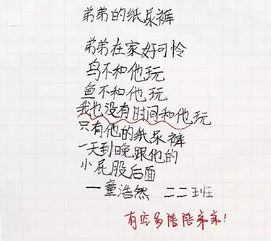 弟弟的纸尿裤
弟弟在家好可怜
鸟不和他玩
鱼不和他玩
我也没有时间和他玩
只有他的纸尿裤
一天到晚跟他的
小屁股后面
一董浩然 二2班
有空多陪陪弟弟!